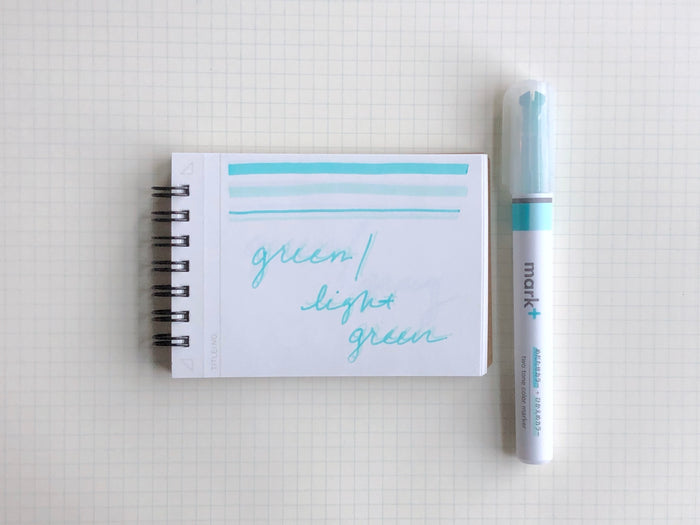 green/
light
green
TITLE/NO.
mark+
two tone color marker